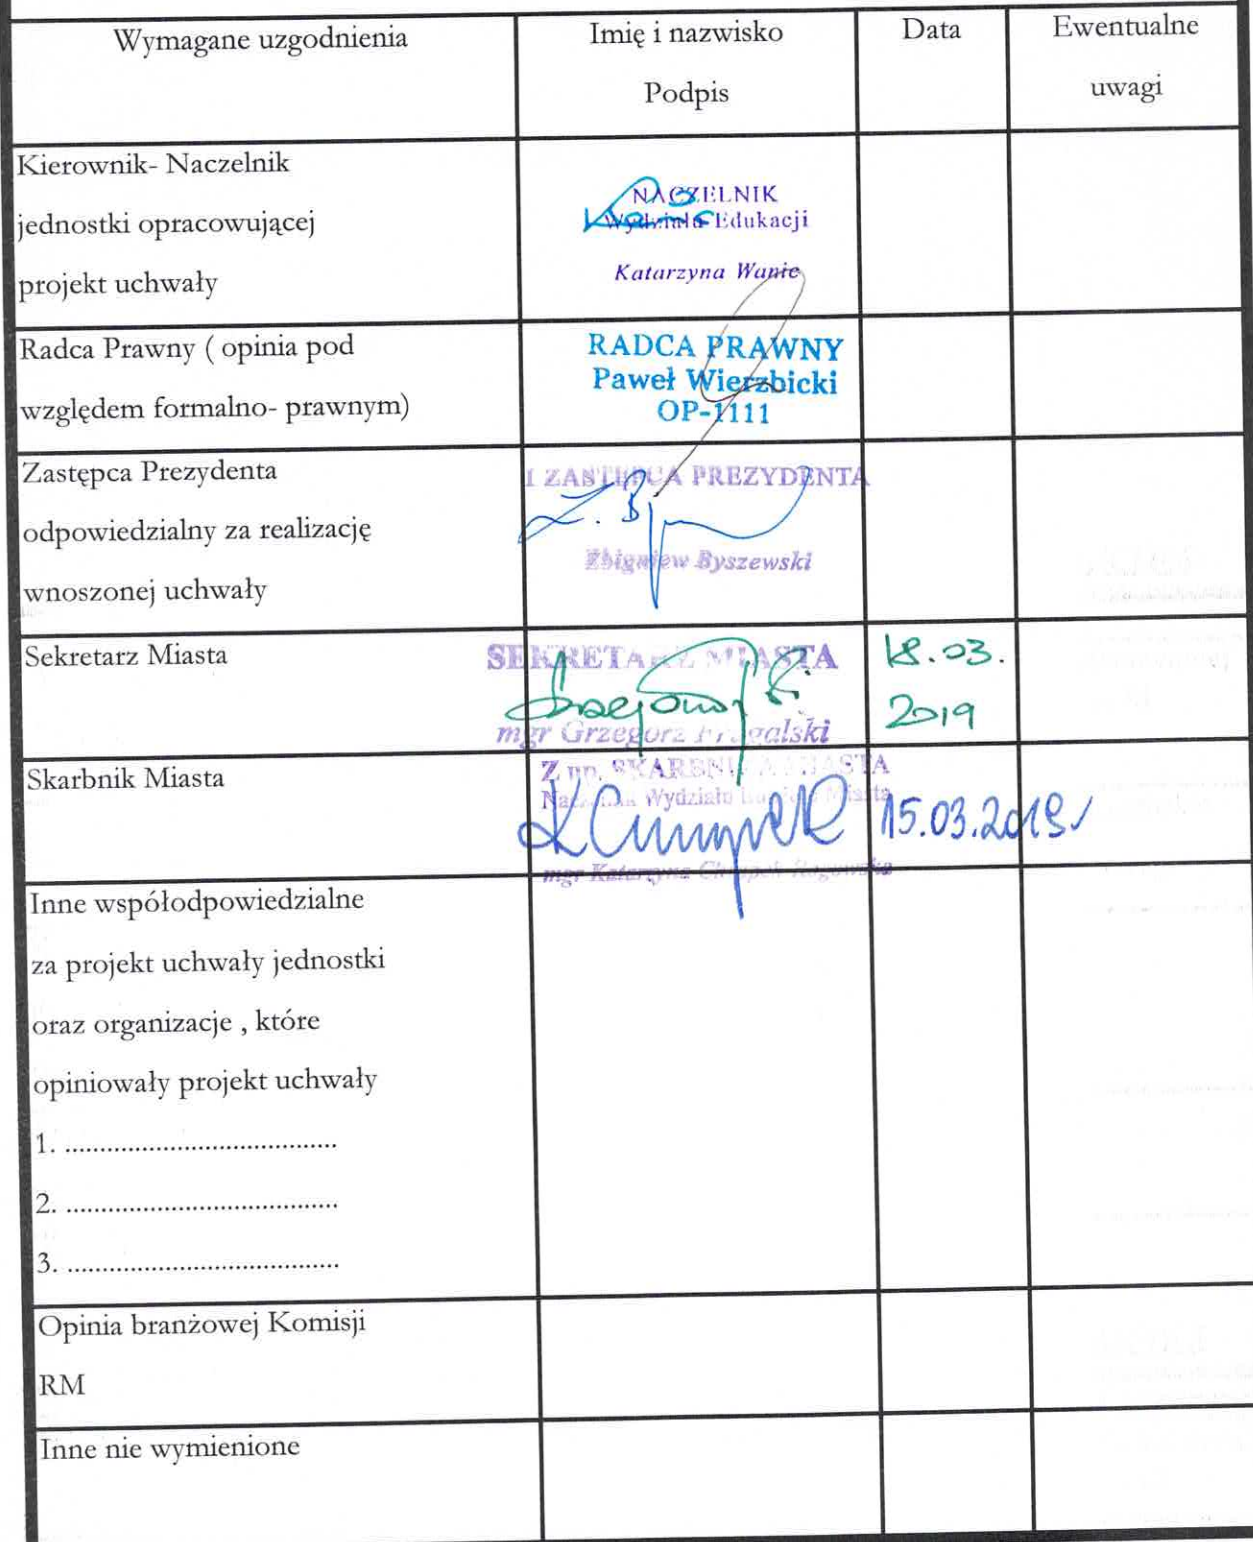 Wymagane uzgodnienia
Imię i nazwisko
Podpis
Data
Ewentualne
uwagi
Kierownik- Naczelnik
jednostki opracowującej
projekt uchwały
NACZELNIK
Wydziału Edukacji
Katarzyna Wanie
Radca Prawny ( opinia pod
względem formalno- prawnym)
RADCA PRAWNY
Paweł Wierzbicki
OP-1111
Zastępca Prezydenta
odpowiedzialny za realizację
wnoszonej uchwały
I ZASTĘPCA PREZYDENTA
Z. B
Zbigniew Byszewski
Sekretarz Miasta
SEKRETARZ MIASTA
mgr Grzegorz Fragalski
18.03.
2019
Skarbnik Miasta
Z up. SKARBNIKA MIASTA
Naczelnik Wydziału Miasta
mgr Katarzyna
15.03.2019r
Inne współodpowiedzialne
za projekt uchwały jednostki
oraz organizacje , które
opiniowały projekt uchwały
1. .......................................
2. .......................................
3. .......................................
Opinia branżowej Komisji
RM
Inne nie wymienione